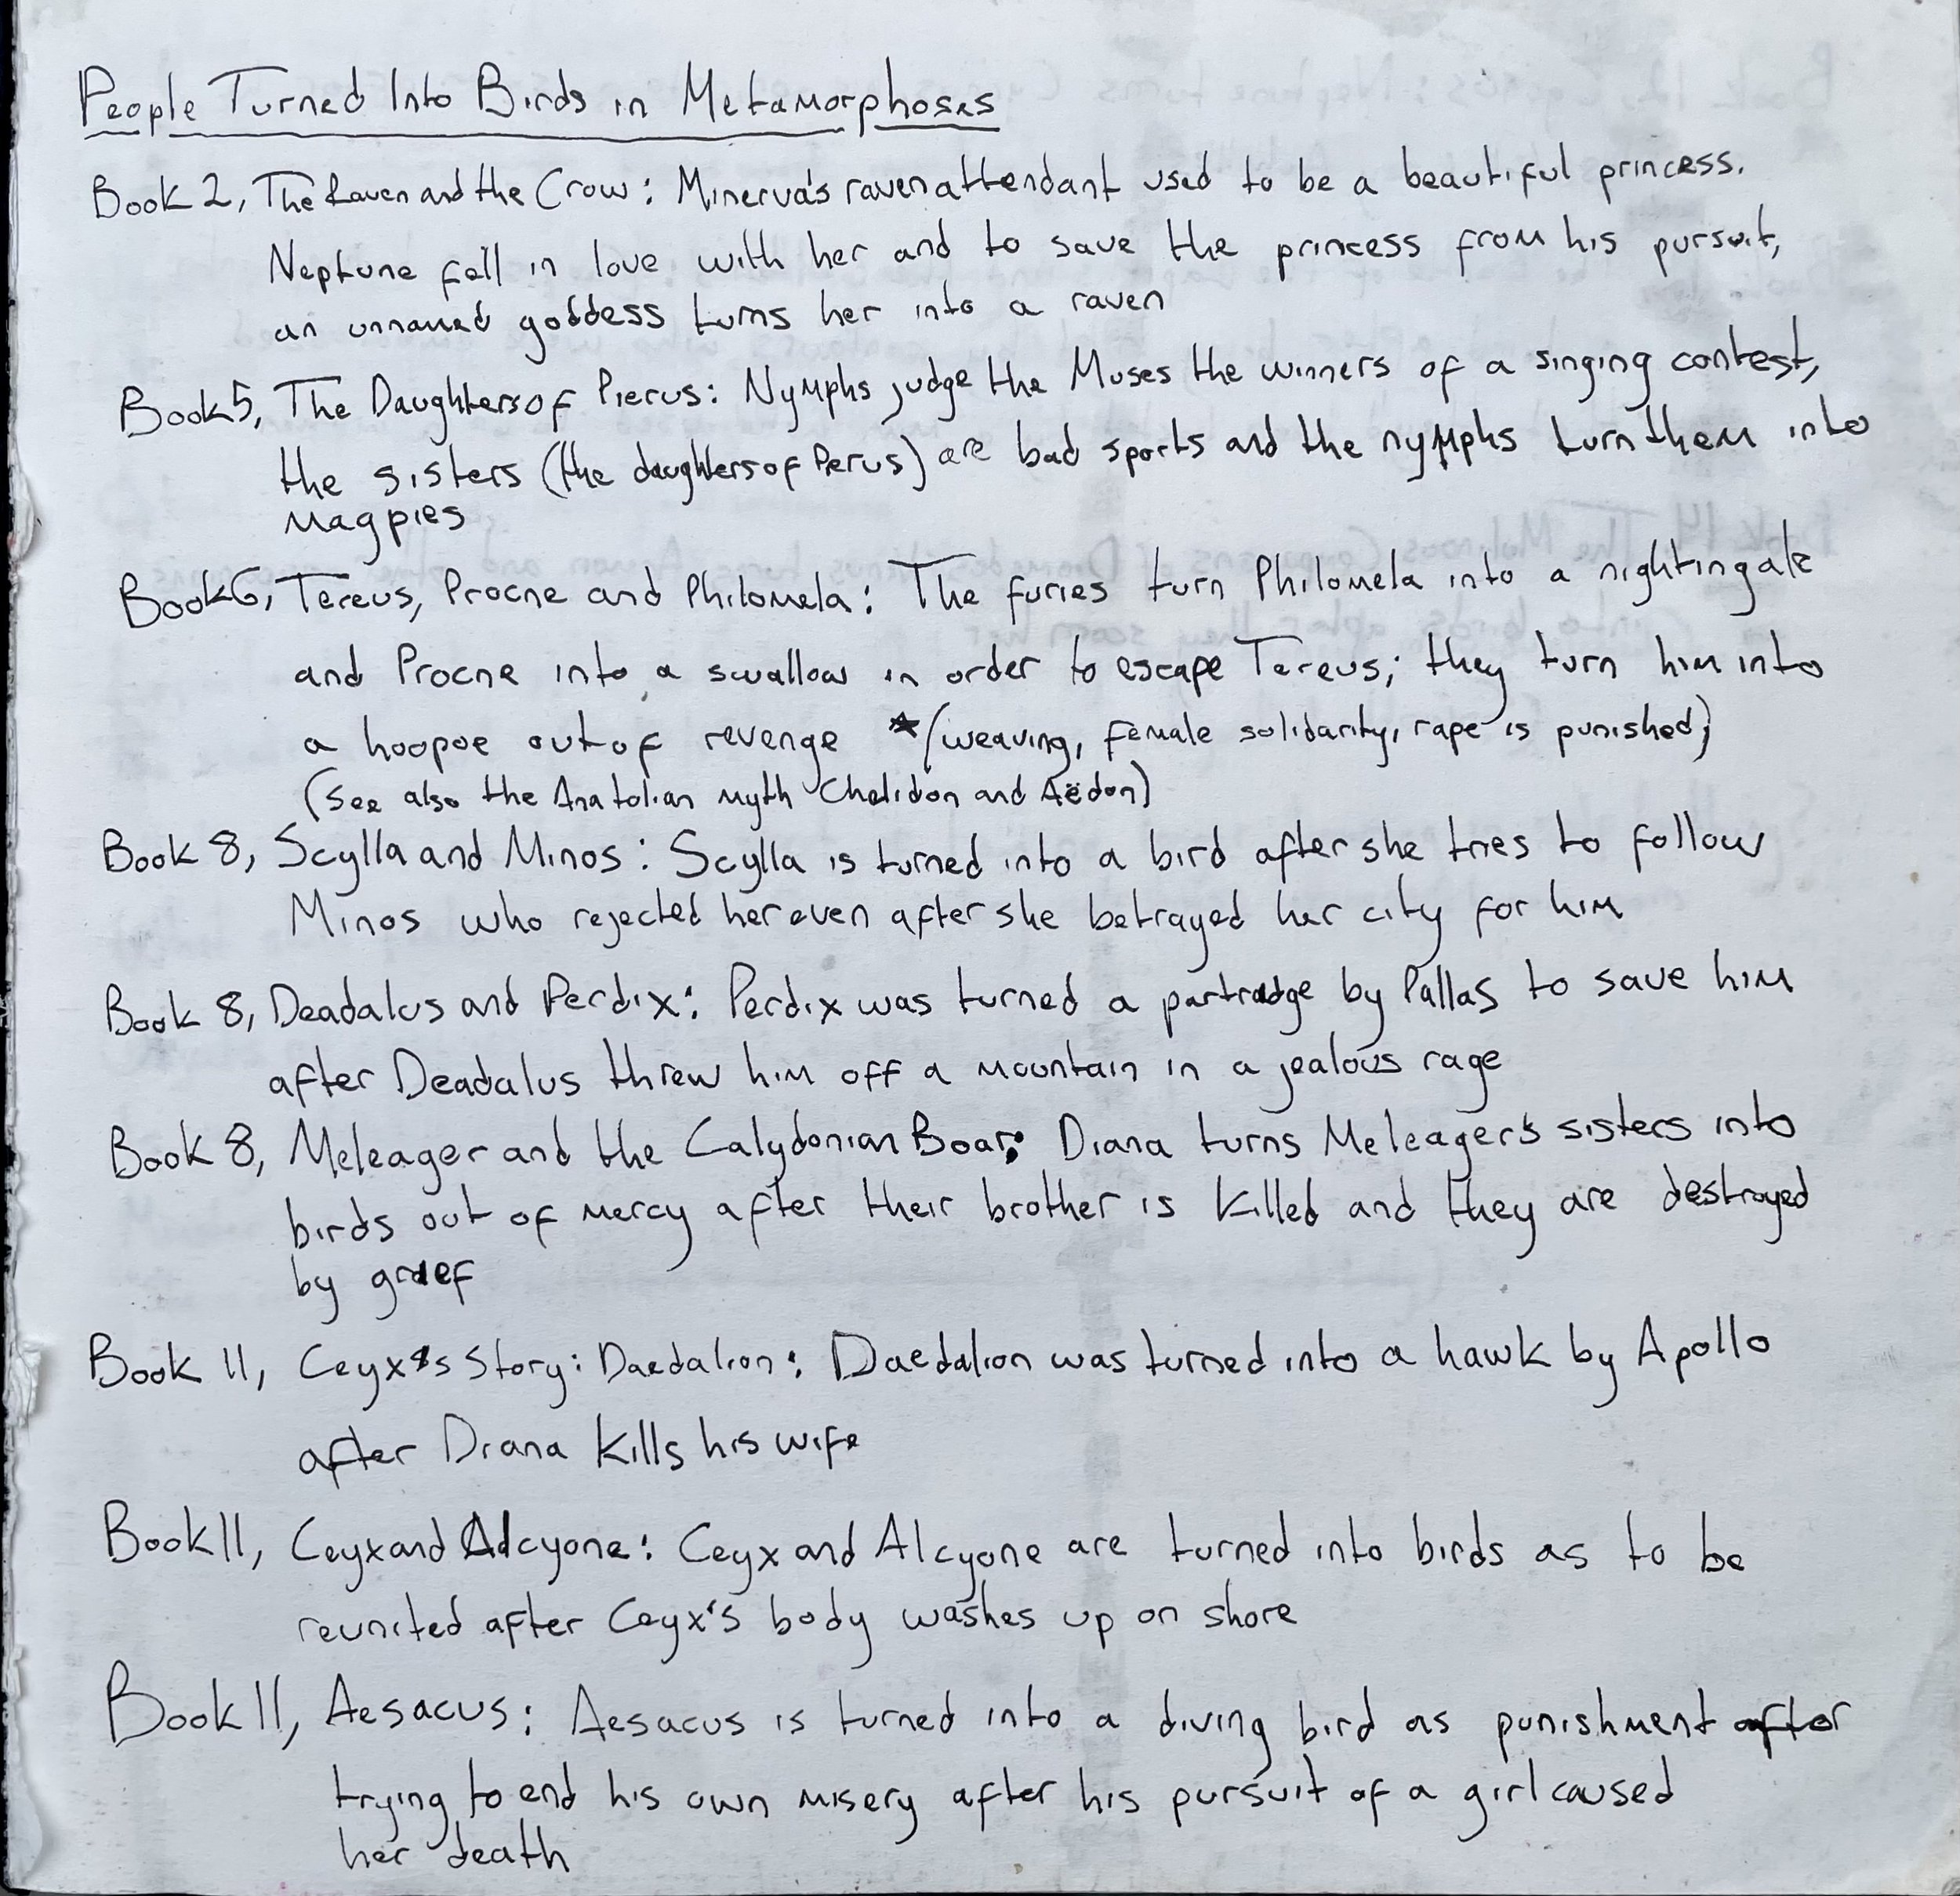 People Turned Into Birds in Metamorphoses
Book 2, The Raven and the Crow: Minerva's raven attendant used to be a beautiful princess.
Neptune fell in love with her and to save the princess from his pursuit,
an unnamed goddess turns her into a raven
Book 5, The Daughters of Pierus: Nymphs judge the Muses the winners of a singing contest,
the sisters (the daughters of Perus) are bad sports and the nymphs turn them into
magpies
Book 6, Tereus, Procne and Philomela: The furies turn Philomela into a nightingale
and Procne into a swallow in order to escape Tereus; they turn him into
a hoopoe out of revenge *(weaving, female solidarity, rape is punished)
(see also the Anatolian myth Chelidon and Aëdon)
Book 8, Scylla and Minos: Scylla is turned into a bird after she tries to follow
Minos who rejected her even after she betrayed her city for him
Book 8, Deadalus and Perdix: Perdix was turned a partradge by Pallas to save him
after Deadalus threw him off a mountain in a jealous rage
Book 8, Meleager and the Calydonian Boar: Diana turns Meleager's sisters into
birds out of mercy after their brother is killed and they are destroyed
by grief
Book 11, Ceyx's Story: Daedalion: Daedalion was turned into a hawk by Apollo
after Diana kills his wife
Book 11, Ceyx and Alcyone: Ceyx and Alcyone are turned into birds as to be
reunited after Ceyx's body washes up on shore
Book 11, Aesacus: Aesacus is turned into a diving bird as punishment after
trying to end his own misery after his pursuit of a girl caused
her death